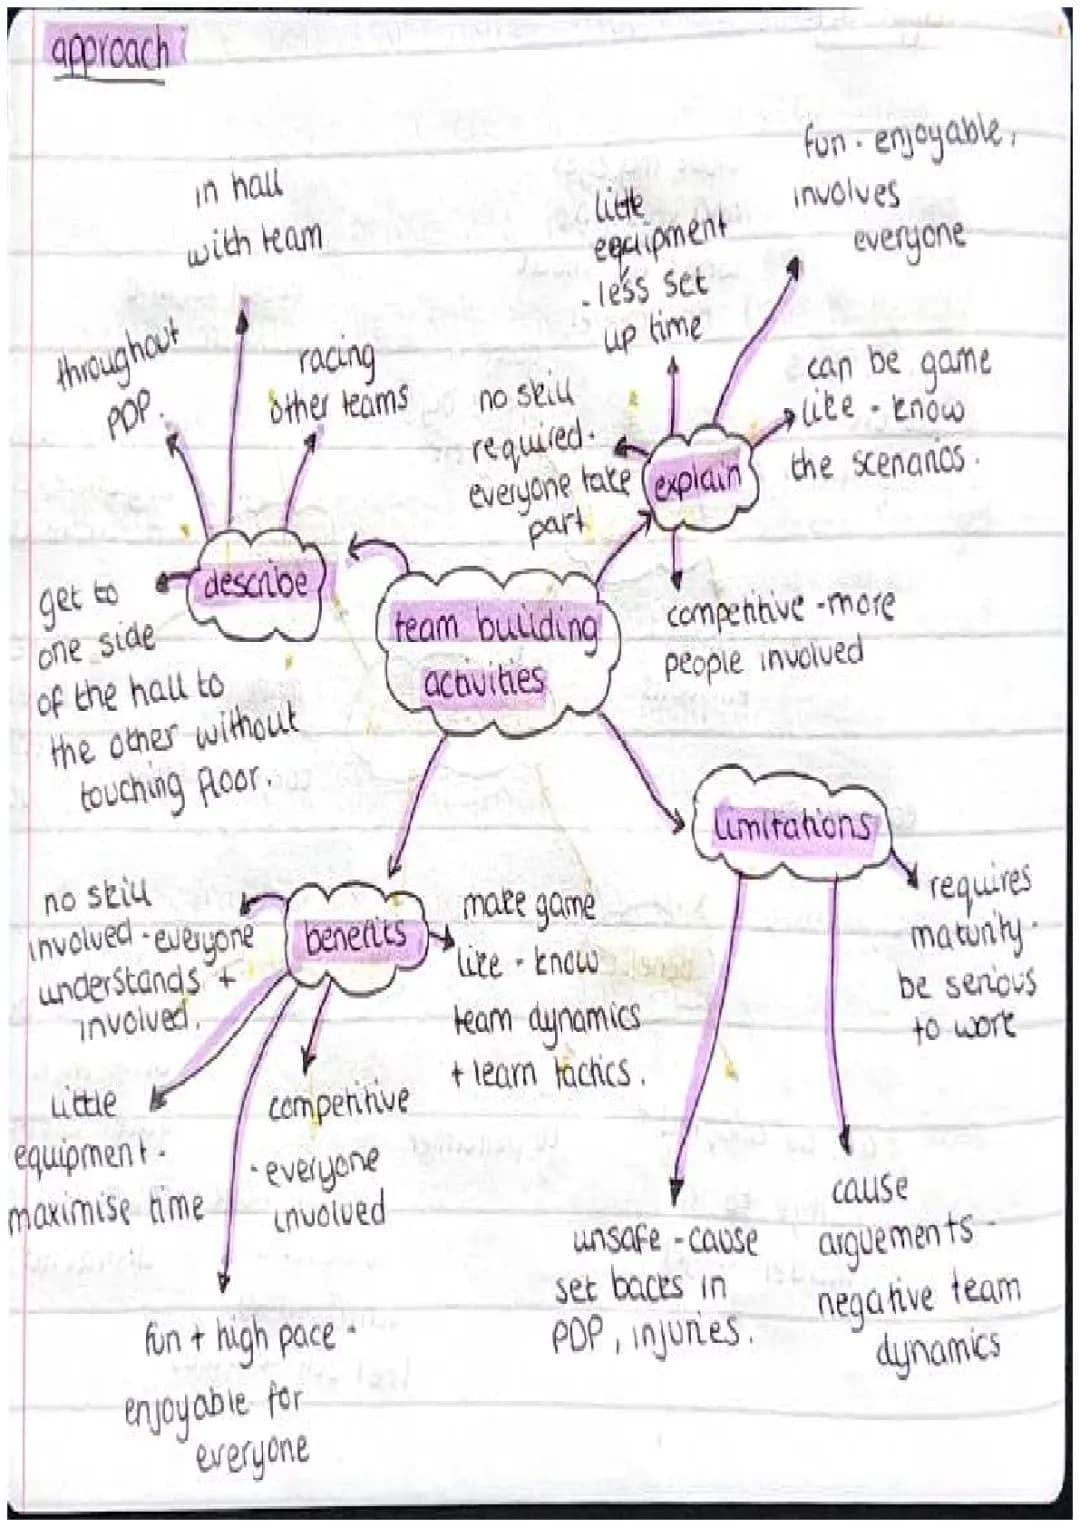 approach:
in hall
with team
throughout
PDP.
racing
other teams
describe
get to
one side
of the hall to
the other without
touching floor.
little
equipment
- less set
up time
fun - enjoyable,
involves
everyone
no skill
required -
everyone take
part
explain
can be game
like - know
the scenarios.
competitive - more
people involved
team building
activities
benefits
no skill
involved - everyone
understands +
involved.
little
equipment -
maximise time
competitive
- everyone
involved
make game
like - know
team dynamics
+ learn tactics.
fun + high pace -
enjoyable for
everyone
limitations
requires
maturity -
be serious
to work
unsafe - cause
set backs in
PDP, injuries.
cause
arguements -
negative team
dynamics